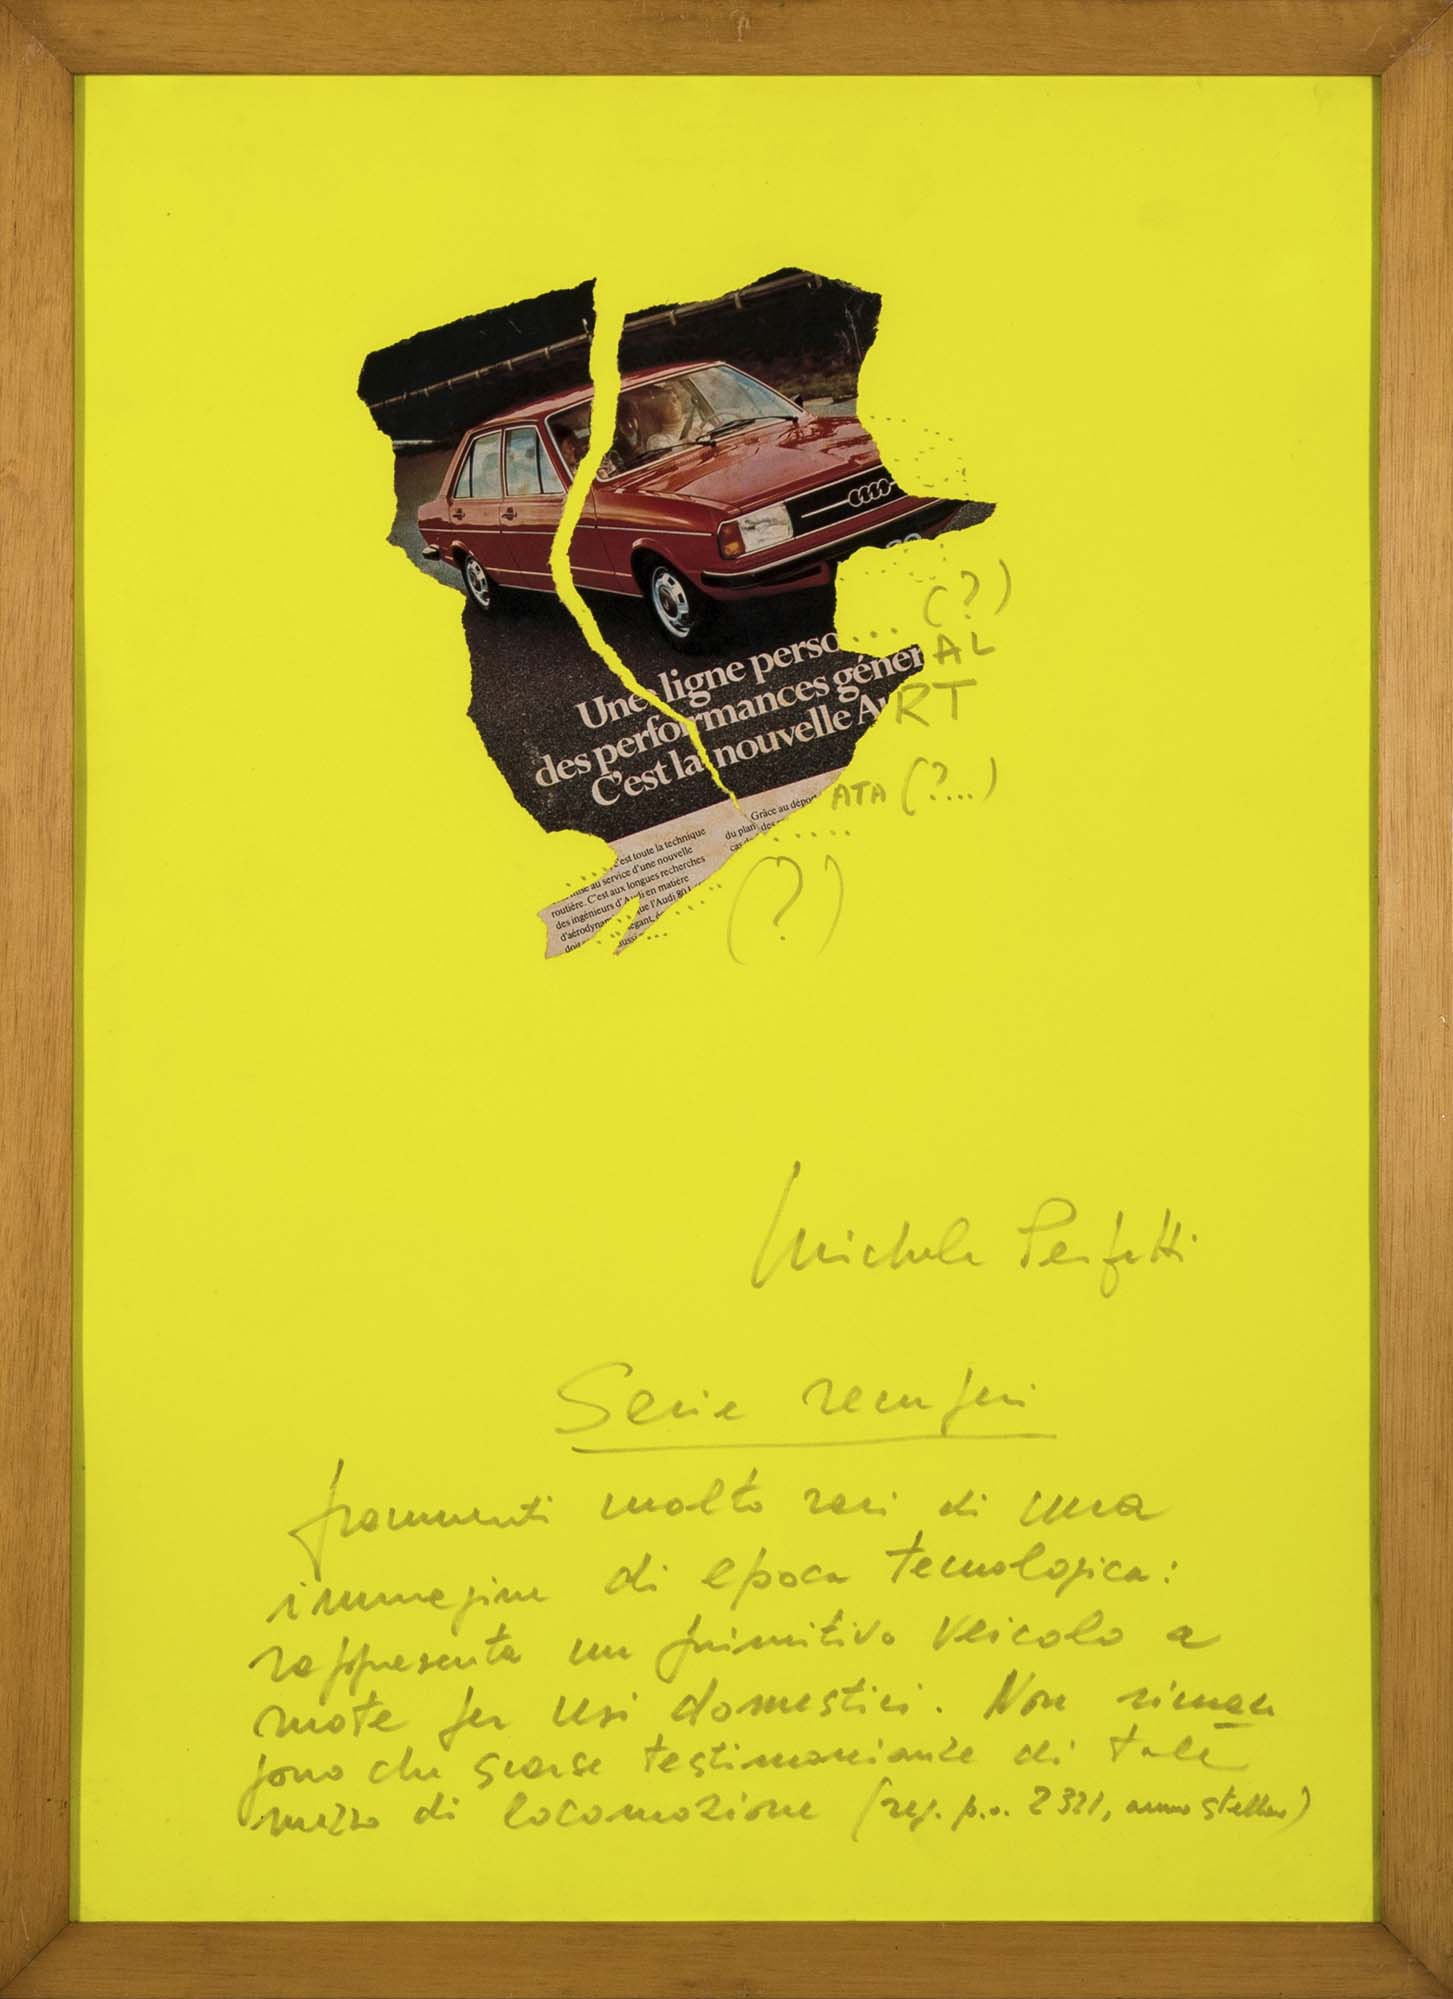 (?)
Une ligne perso...
des performances génerAL
C'est la nouvelle AuRT
ATA (?...)
Grâce au dépo
du plan des
'est toute la technique
au service d'une nouvelle
routière. C'est aux longues recherches
des ingénieurs d'Audi en matière
d'aérodynam que l'Audi 80 L
égant,
doit aussi
(?)
Michele Perfetti
Serie recuperi
frammenti molto rari di una
immagine di epoca tecnologica:
rappresenta un primitivo veicolo a
mote per usi domestici. Non riman
gono che scarse testimonianze di tale
mezzo di locomozione (rep. p.o. 2321, anno stellare)